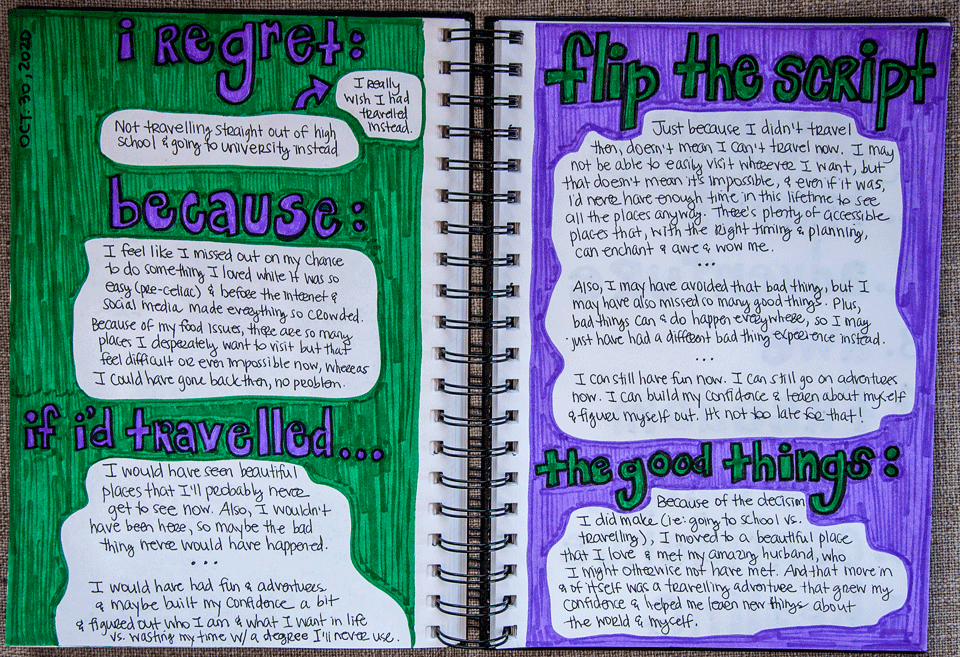 OCT. 30, 2020
i regret:
I really
wish I had
travelled
instead.
Not travelling straight out of high
school & going to university instead
because:
I feel like I missed out on my chance
to do something I loved while it was so
easy (pre-celiac) & before the internet &
social media made everything so crowded.
Because of my food issues, there are so many
places I desperately want to visit but that
feel difficult or even impossible now, whereas
I could have gone back then, no problem.
if i'd travelled...
I would have seen beautiful
places that I'll probably never
get to see now. Also, I wouldn't
have been here, so maybe the bad
thing never would have happened.
...
I would have had fun & adventures.
& maybe built my confidence a bit
& figured out who I am & what I want in life
vs. wasting my time w/ a degree I'll never use.
flip the script
Just because I didn't travel
then, doesn't mean I can't travel now. I may
not be able to easily visit wherever I want, but
that doesn't mean it's impossible, & even if it was,
I'd never have enough time in this lifetime to see
all the places anyway. There's plenty of accessible
places that, with the right timing & planning,
can enchant & awe & wow me.
...
Also, I may have avoided that bad thing, but I
may have also missed so many good things. Plus,
bad things can & do happen everywhere, so I may
just have had a different bad thing experience instead.
...
I can still have fun now. I can still go on adventures
now. I can build my confidence & learn about myself
& figure myself out. It's not too late for that!
the good things:
Because of the decision
I did make (ie: going to school vs.
travelling), I moved to a beautiful place
that I love & met my amazing husband, who
I might otherwise not have met. And that move in
& of itself was a travelling adventure that grew my
confidence & helped me learn new things about
the world & myself.